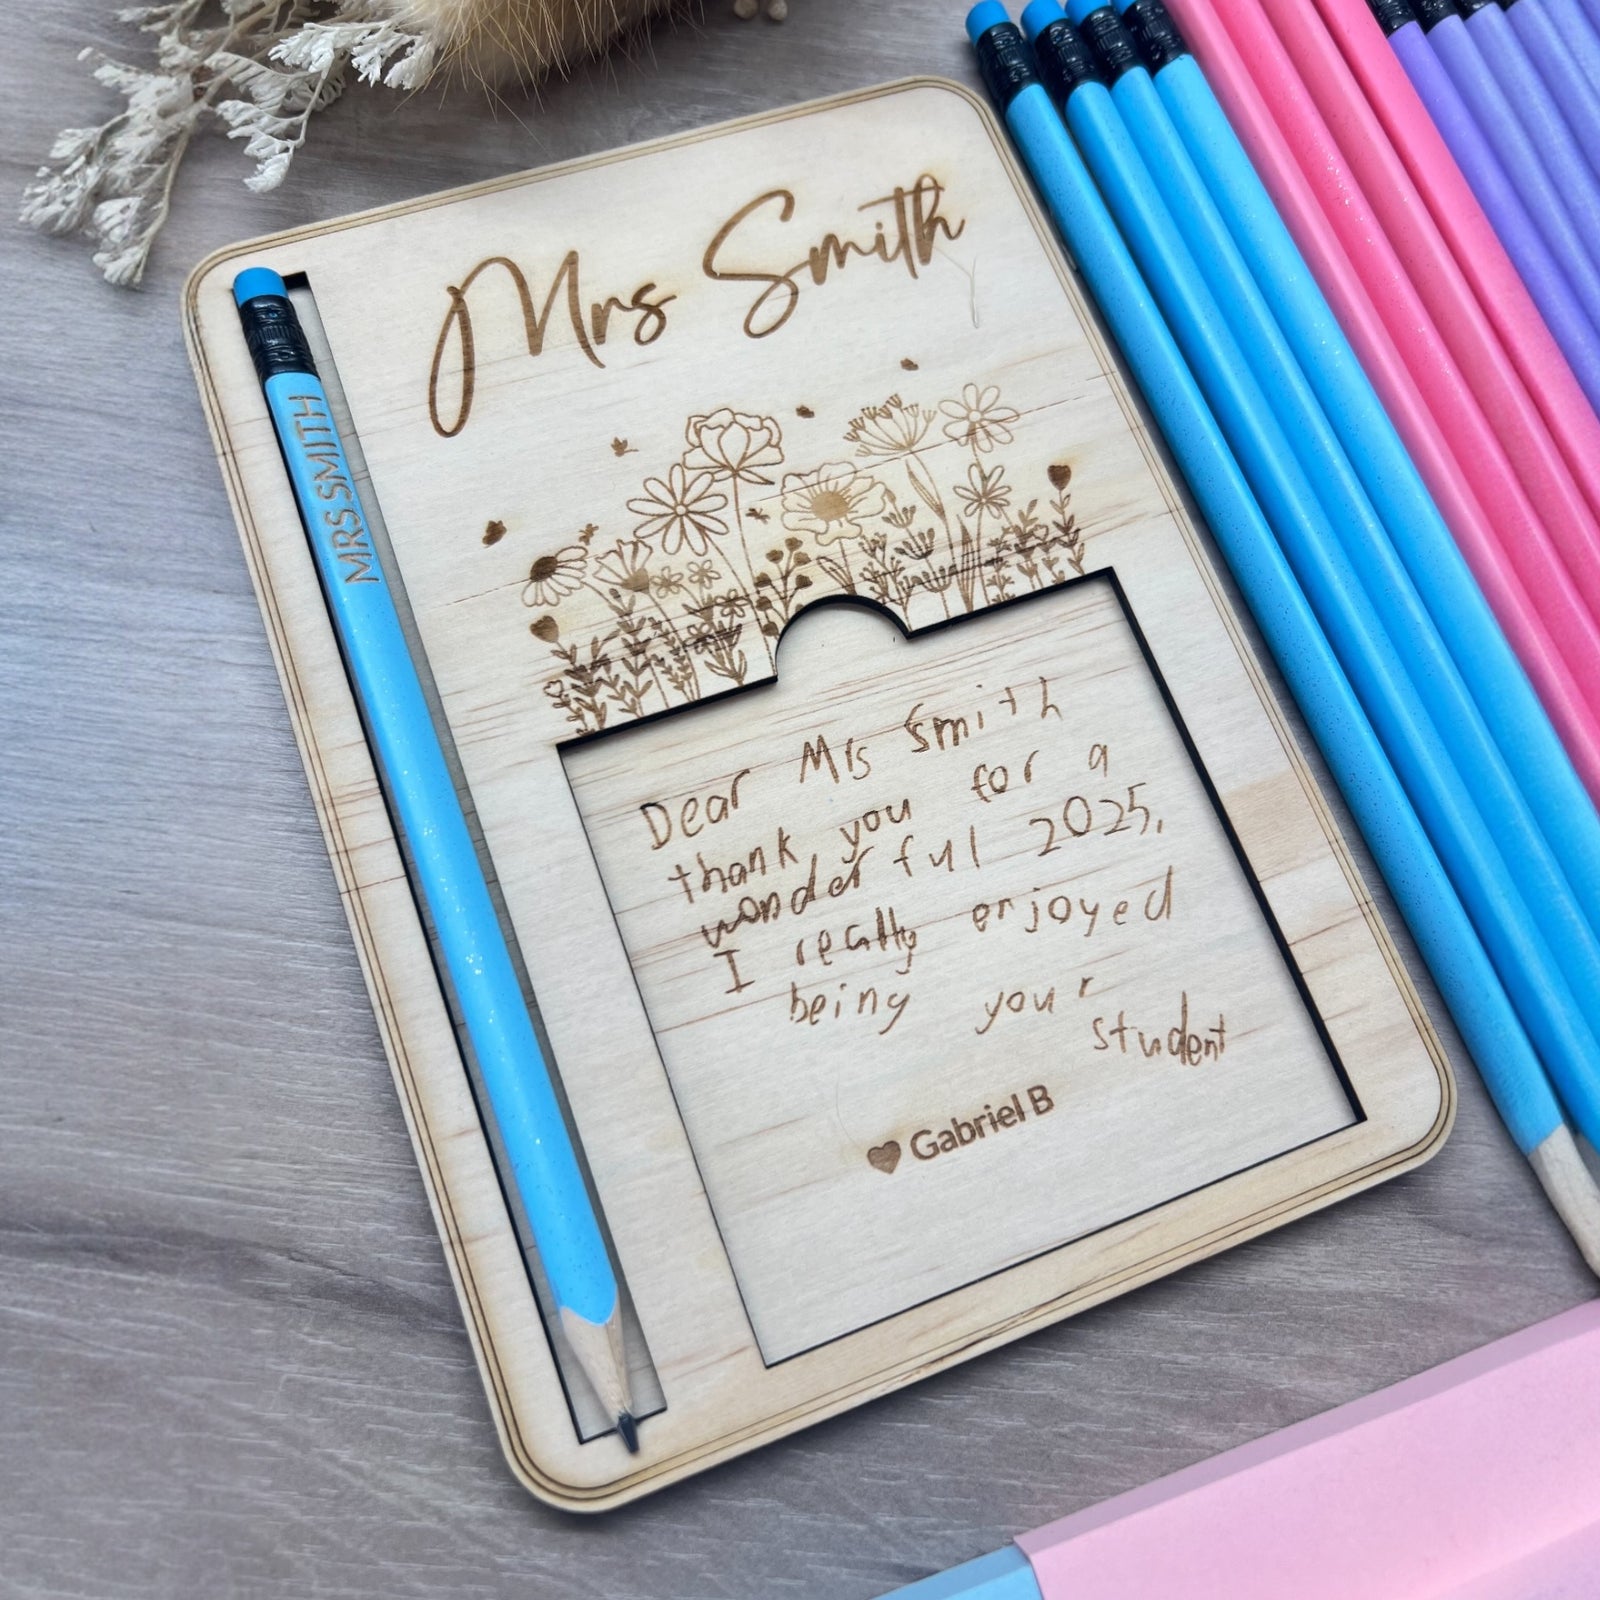 Mrs Smith
MRS SMITH
Dear Mrs Smith
thank you for a
wonderful 2025.
I really enjoyed
being your
student
♥ Gabriel B